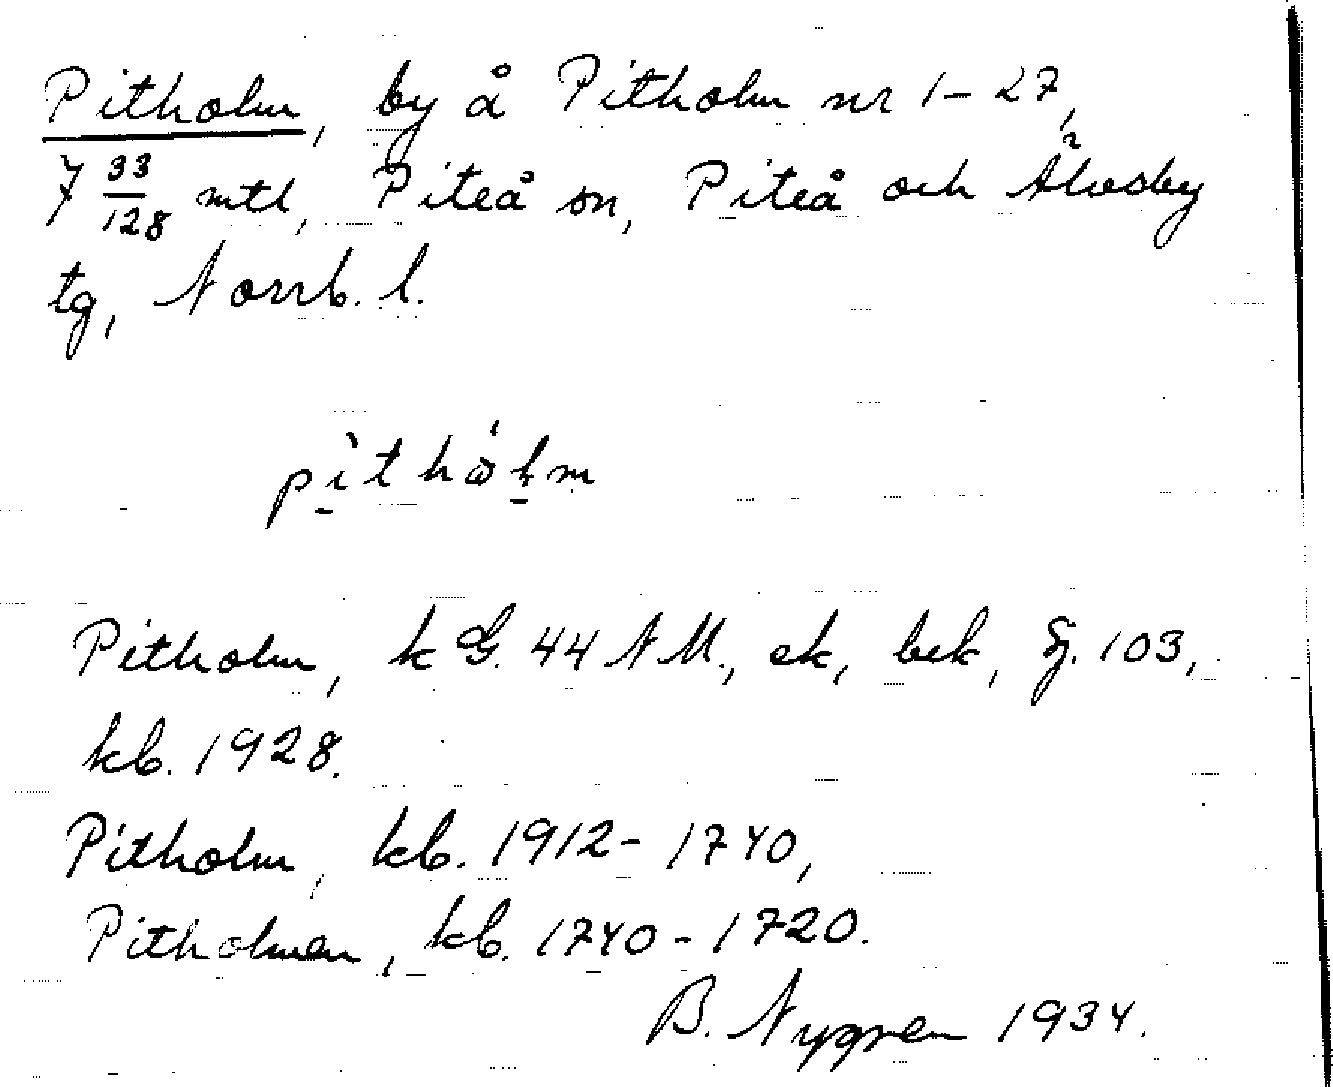 Pitholm, by å Pitholm nr 1-27,
7 33/128 mtl, Piteå sn, Piteå och Älvsby
tg, Norrb. l.
pìthólm
Pitholm, k G. 44 NM., ek, bek, Fj. 103,
kb. 1928.
Pitholm, kb. 1912-1740,
Pitholmen, kb. 1740-1720.
B. Nygren 1934.